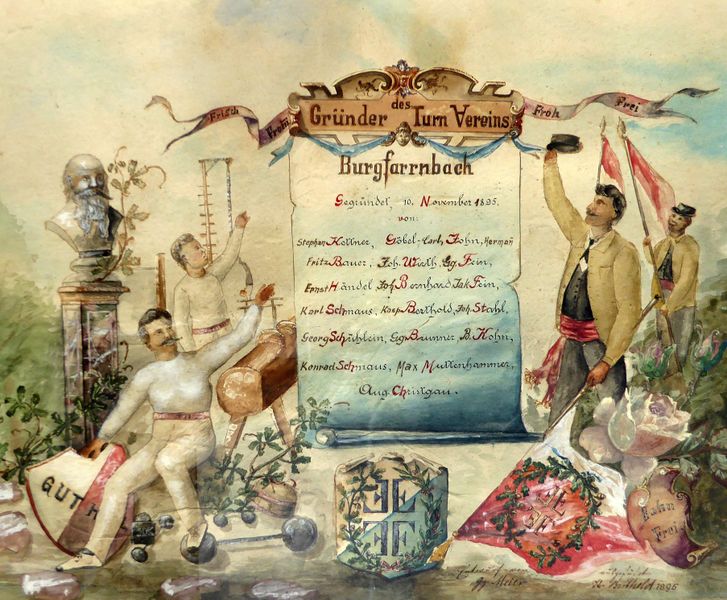 Frisch Fromm Froh Frei
Gründer des Turn Vereins
Burgfarrnbach
Gegründet 10. November 1895.
von:
Stephan Kollner, Göbel-Carl, John, Herman
Fritz Bauer, Joh. Wirth, Gg. Fein,
Ernst Händel Joh. Bernhard, Jak. Fein,
Karl Schmaus, Kasp. Berthold, Joh. Stahl,
Georg Schühlein, Gg. Brunner, B. Kohn,
Konrad Schmaus, Max Muttenhammer,
Aug. Christgau.
GUT H
FF
FF
FF
FF
Bahn
Frei
Entworfen von ausgeführt
Gg. Meier Berthold 1895